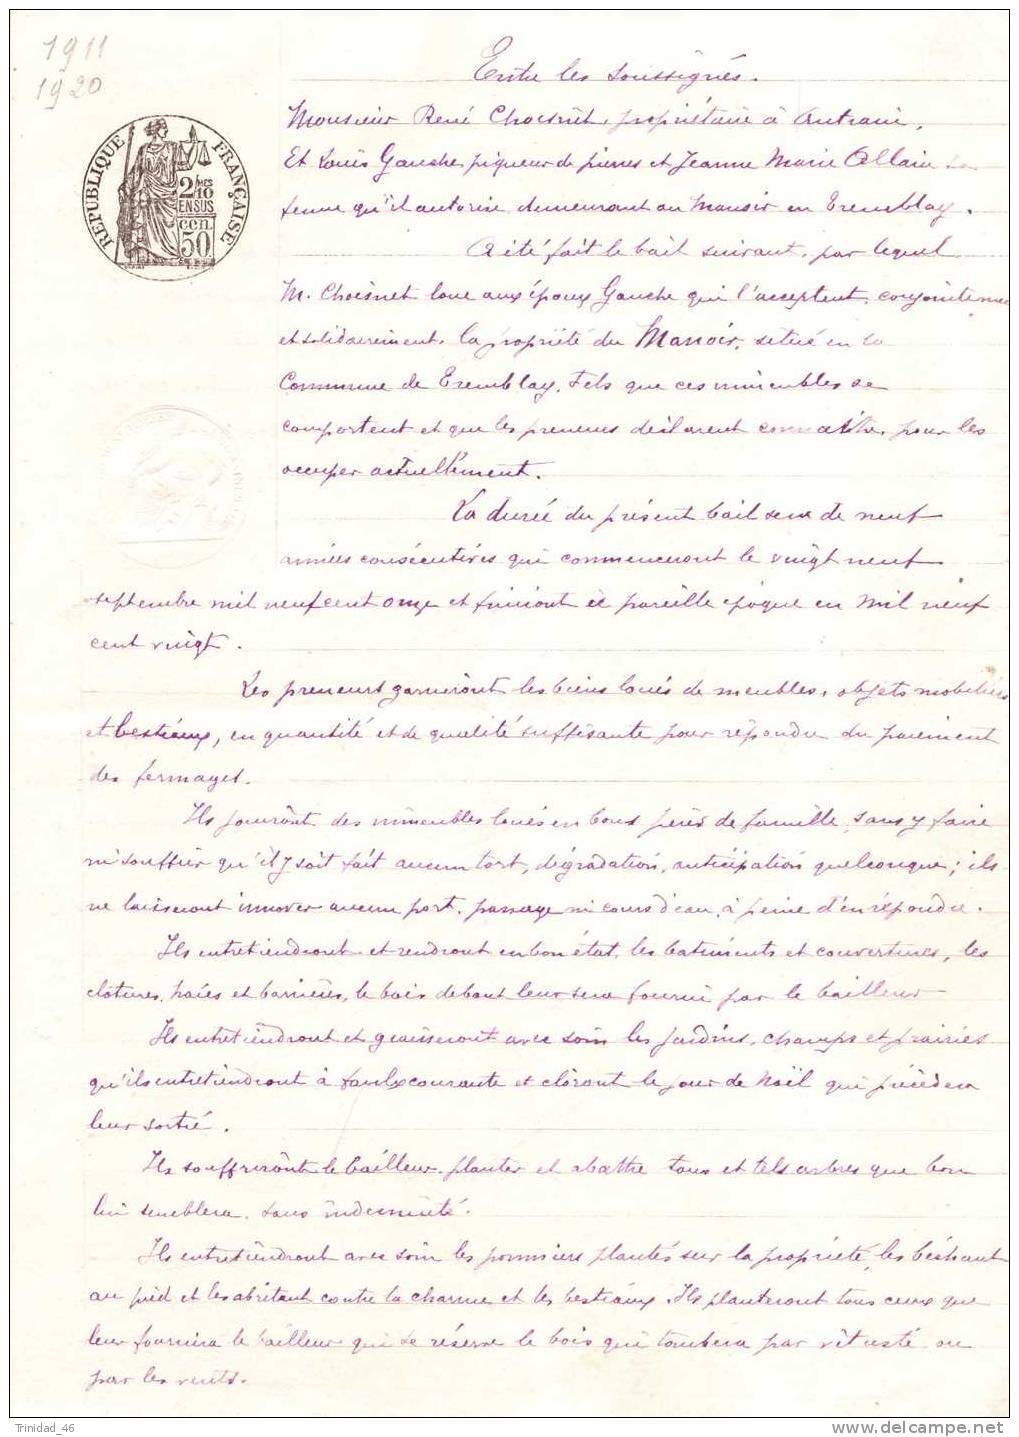 1911
1920
RÉPUBLIQUE FRANÇAISE
2/10 MES
EN SUS
50 CEN.
Entre les soussignés.
Monsieur René Choisnet, propriétaire à Antrain,
Et Louis Gauche, piqueur de pierres et Jeanne Marie Allain sa
femme qu'il autorise, demeurant au Manoir en Tremblay.
A été fait le bail suivant, par lequel
M. Choisnet loue aux époux Gauche qui l'acceptent, conjointement
et solidairement, la propriété du Manoir, située en la
Commune de Tremblay. Tels que ces immeubles se
comportent et que les preneurs déclarent connaître, pour les
occuper actuellement.
La durée du présent bail sera de neuf
années consécutives qui commenceront le vingt neuf
septembre mil neuf cent onze et finiront à pareille époque en mil neuf
cent vingt.
Les preneurs garniront les biens loués de meubles, objets mobiliers
et bestiaux, en quantité et de qualité suffisante pour répondre du paiement
des fermages.
Ils jouiront des immeubles loués en bons pères de famille, sans y faire
ni souffrir qu'il y soit fait aucun tort, dégradation, anticipation quelconque; ils
ne laisseront innover aucun port, passage ni cours d'eau, à peine d'en répondre.
Ils entretiendront et rendront en bon état, les batiments et couvertures, les
clôtures, haies et barrières, le bois debout leur sera fourni par le bailleur
Ils entretiendront et graisseront avec soin les jardins, champs et prairies
qu'ils entretiendront à faulx courante et cloront le jour de Noël qui précèdera
leur sortie.
Ils souffriront le bailleur, planter et abattre tous et tels arbres que bon
lui semblera, sans indemnité.
Ils entretiendront avec soin les pommiers plantés sur la propriété, les béchant
au pied et les abritant contre la charrue et les bestiaux. Ils planteront tous ceux que
leur fournira le bailleur qui se réserve le bois qui tombera par vétusté ou
par les vents.
Trinidad_46
www.delcampe.net